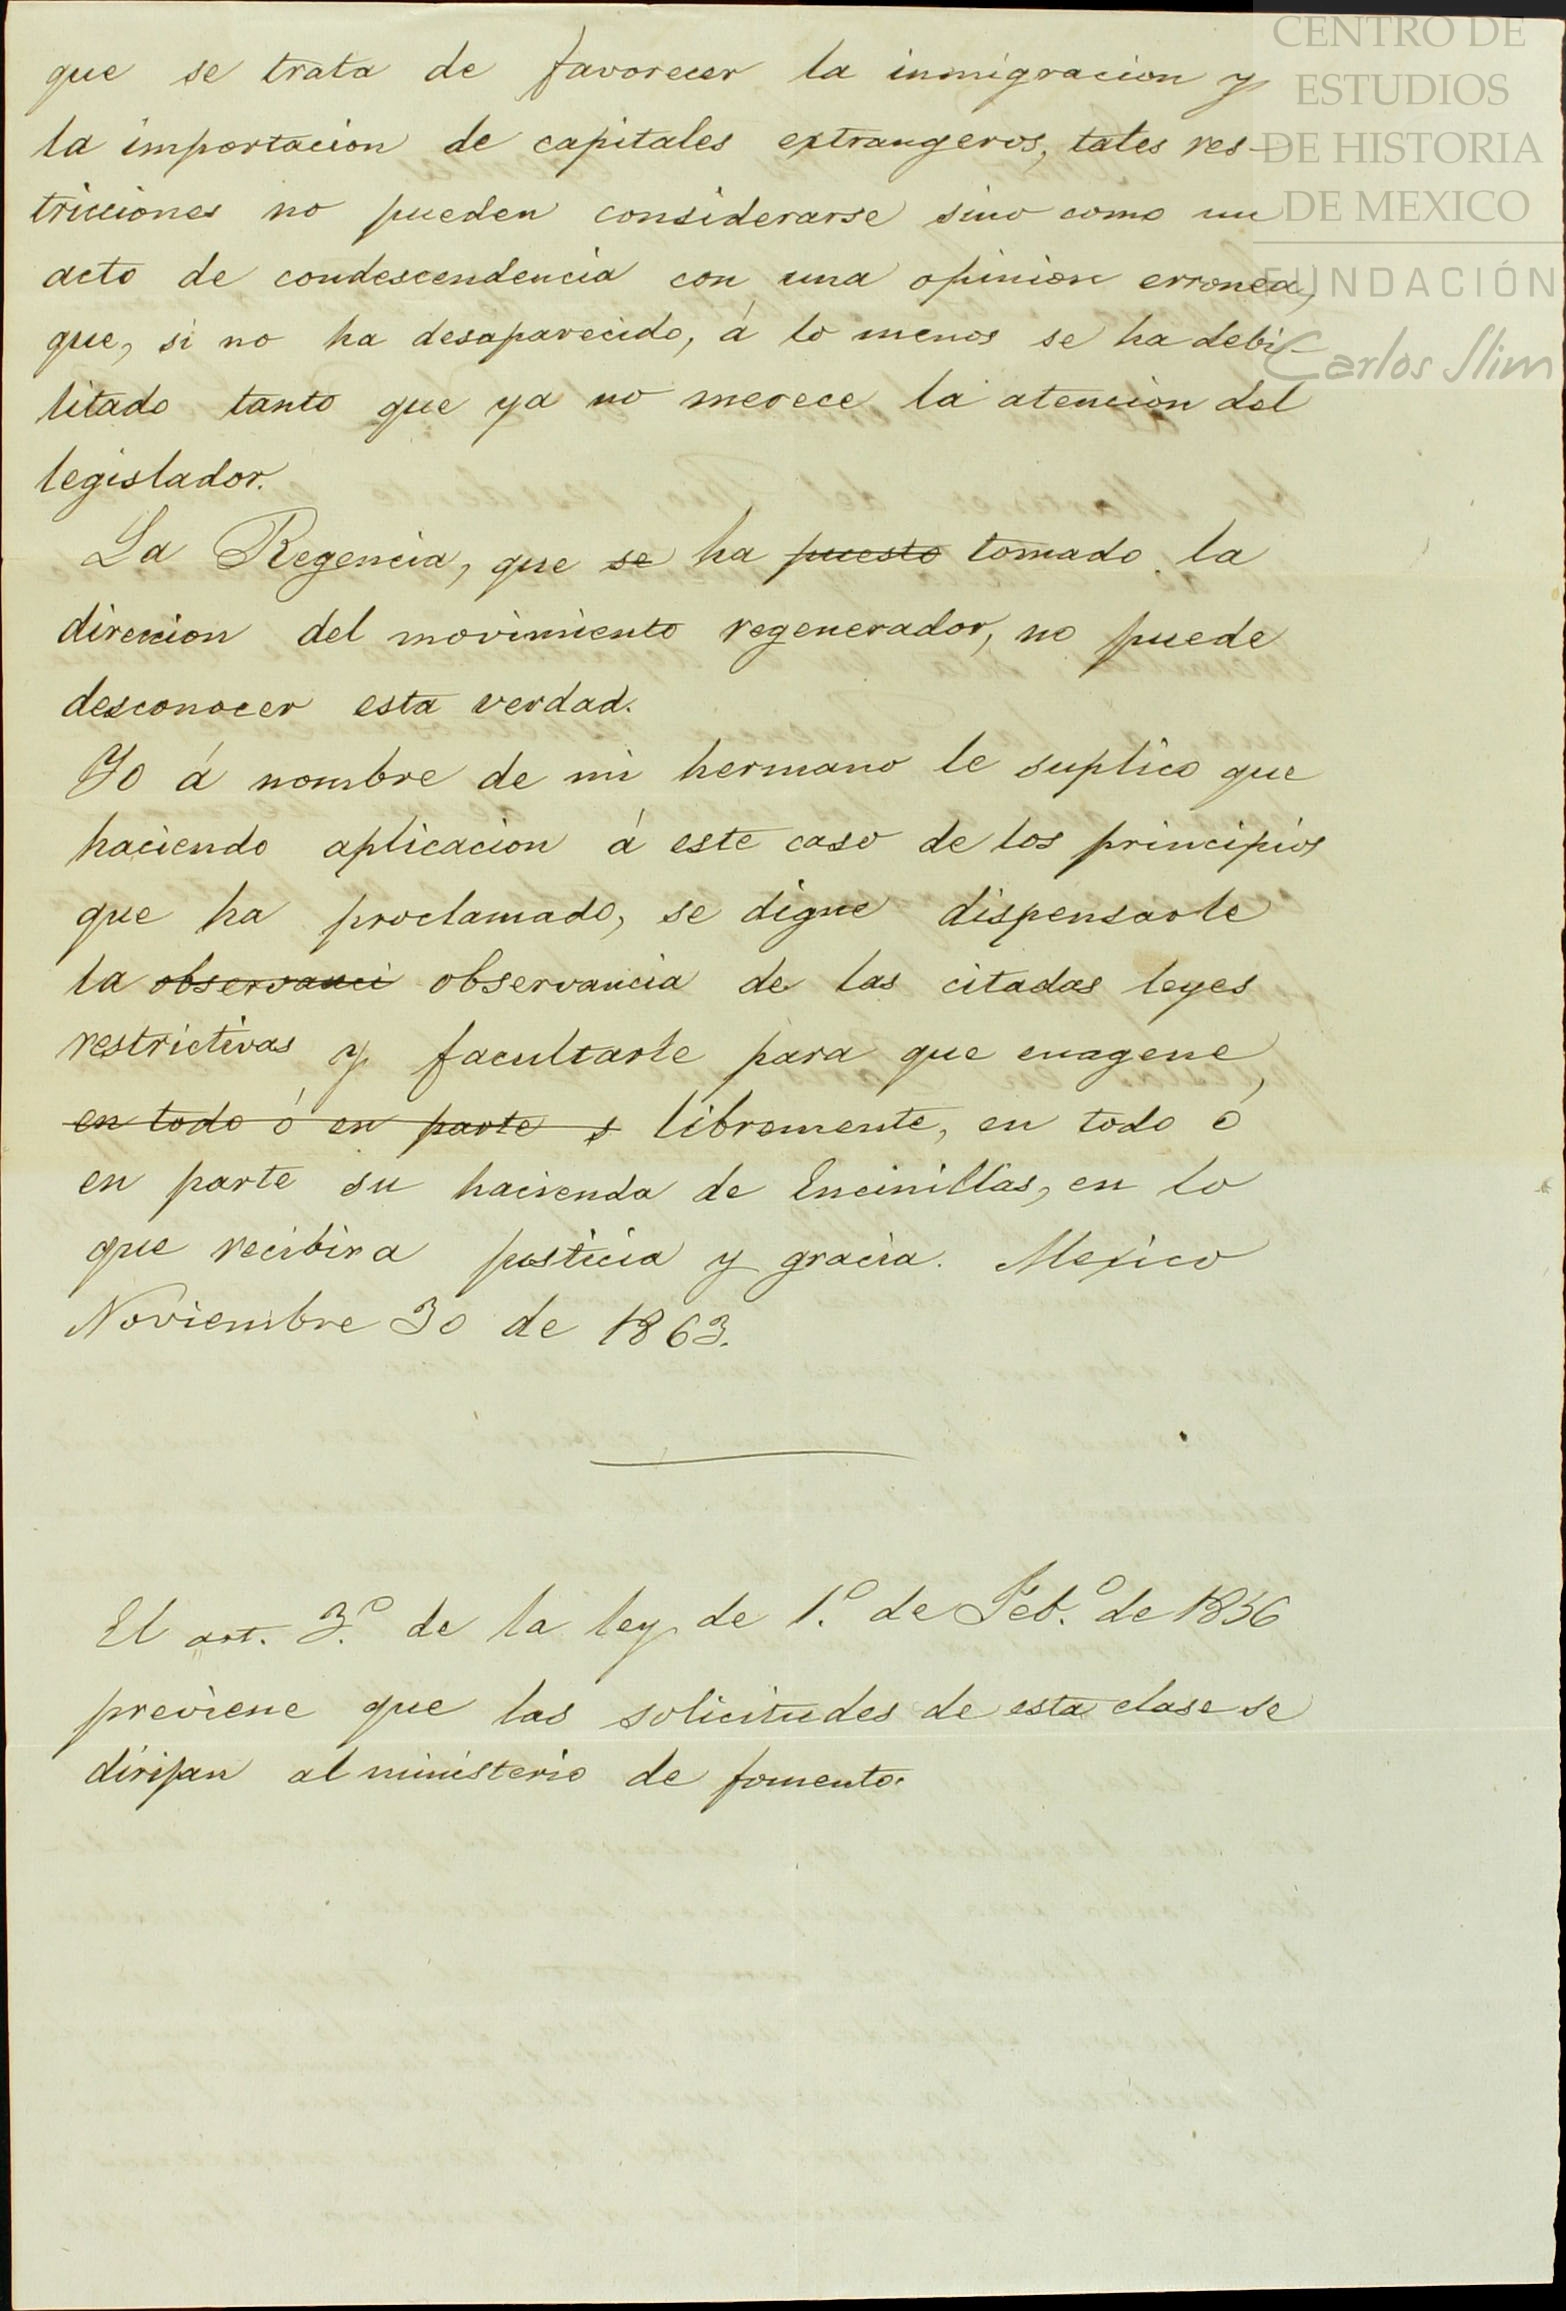 que se trata de favorecer la inmigracion y
la importacion de capitales extrangeros, tales res-
tricciones no pueden considerarse sino como un
acto de condescendencia con una opinion erronea,
que, si no ha desaparecido, á lo menos se ha debi-
litado tanto que ya no merece la atencion del
legislador.
La Regencia, que se ha puesto tomado la
direccion del movimiento regenerador, no puede
desconocer esta verdad.
Yo á nombre de mi hermano le suplico que
haciendo aplicacion á este caso de los principios
que ha proclamado, se digne dispensarle
la observanci observancia de las citadas leyes
restrictivas y facultarle para que enagene,
en todo ó en parte s libremente, en todo ó
en parte su hacienda de Encinillas, en lo
que recibira justicia y gracia. Mexico
Noviembre 30 de 1863.
El art. 3.º de la ley de 1.º de Feb.º de 1856
previene que las solicitudes de esta clase se
dirijan al ministerio de fomento.
CENTRO DE
ESTUDIOS
DE HISTORIA
DE MEXICO
FUNDACIÓN
Carlos Slim